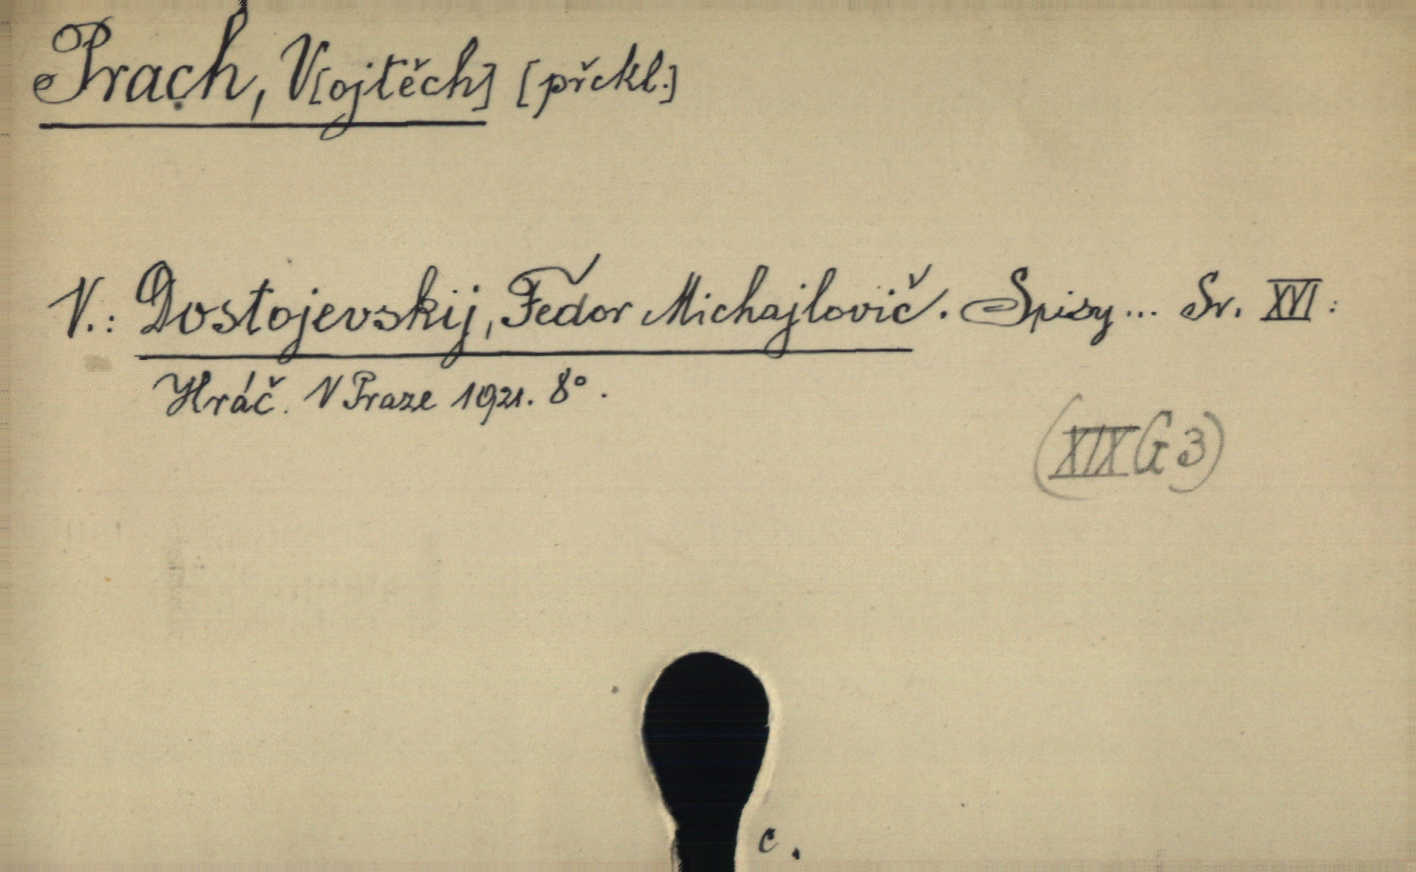 Prach, V[ojtěch] [překl.]
V.: Dostojevskij, Fedor Michajlovič. Spisy... Sv. XVI:
Hráč. V Praze 1921. 8°.
(XIX G 3)
c.